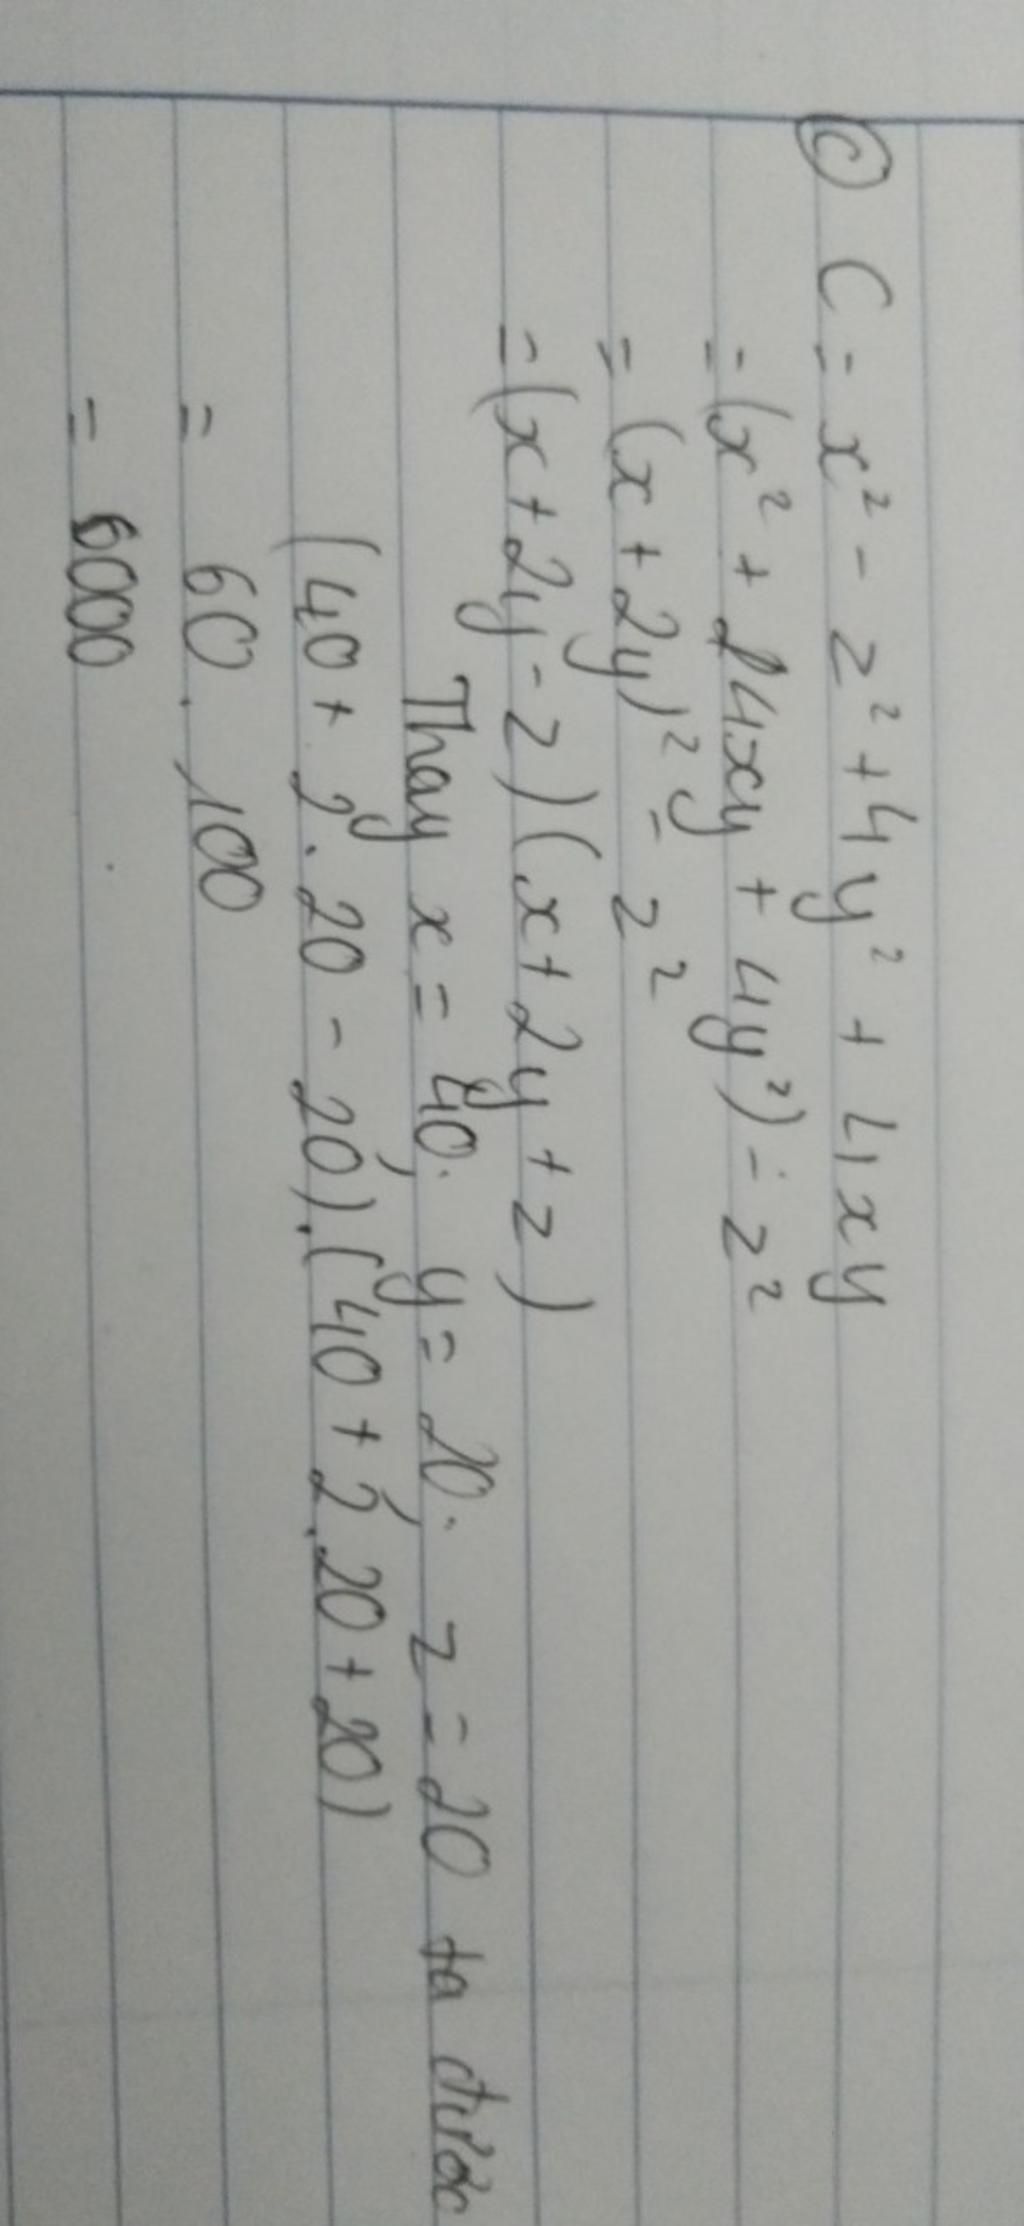 c) C = x² - z² + 4y² + 4xy
= (x² + 4xy + 4y²) - z²
= (x + 2y)² - z²
= (x + 2y - z)(x + 2y + z)
Thay x = 40. y = 20. z = 20 ta được
(40 + 2.20 - 20).(40 + 2.20 + 20)
= 60.100
= 6000